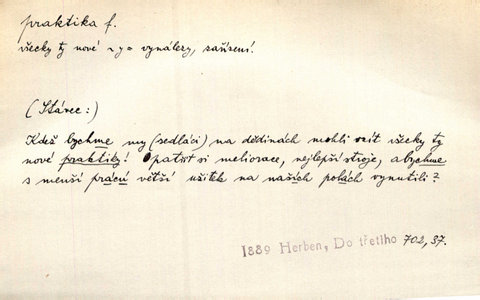 praktika f.
všecky ty nové ~y = vynálezy, zařízení.
(Stárec:)
Kdež bychme my (sedláci) na dědinách mohli znít všecky ty
nové praktiky! Opatřit si meliorace, nejlepší stroje, abychme
s menší prácú větší užitek na našich polách vynutili?
1889 Herben, Do třetího 702, 37.